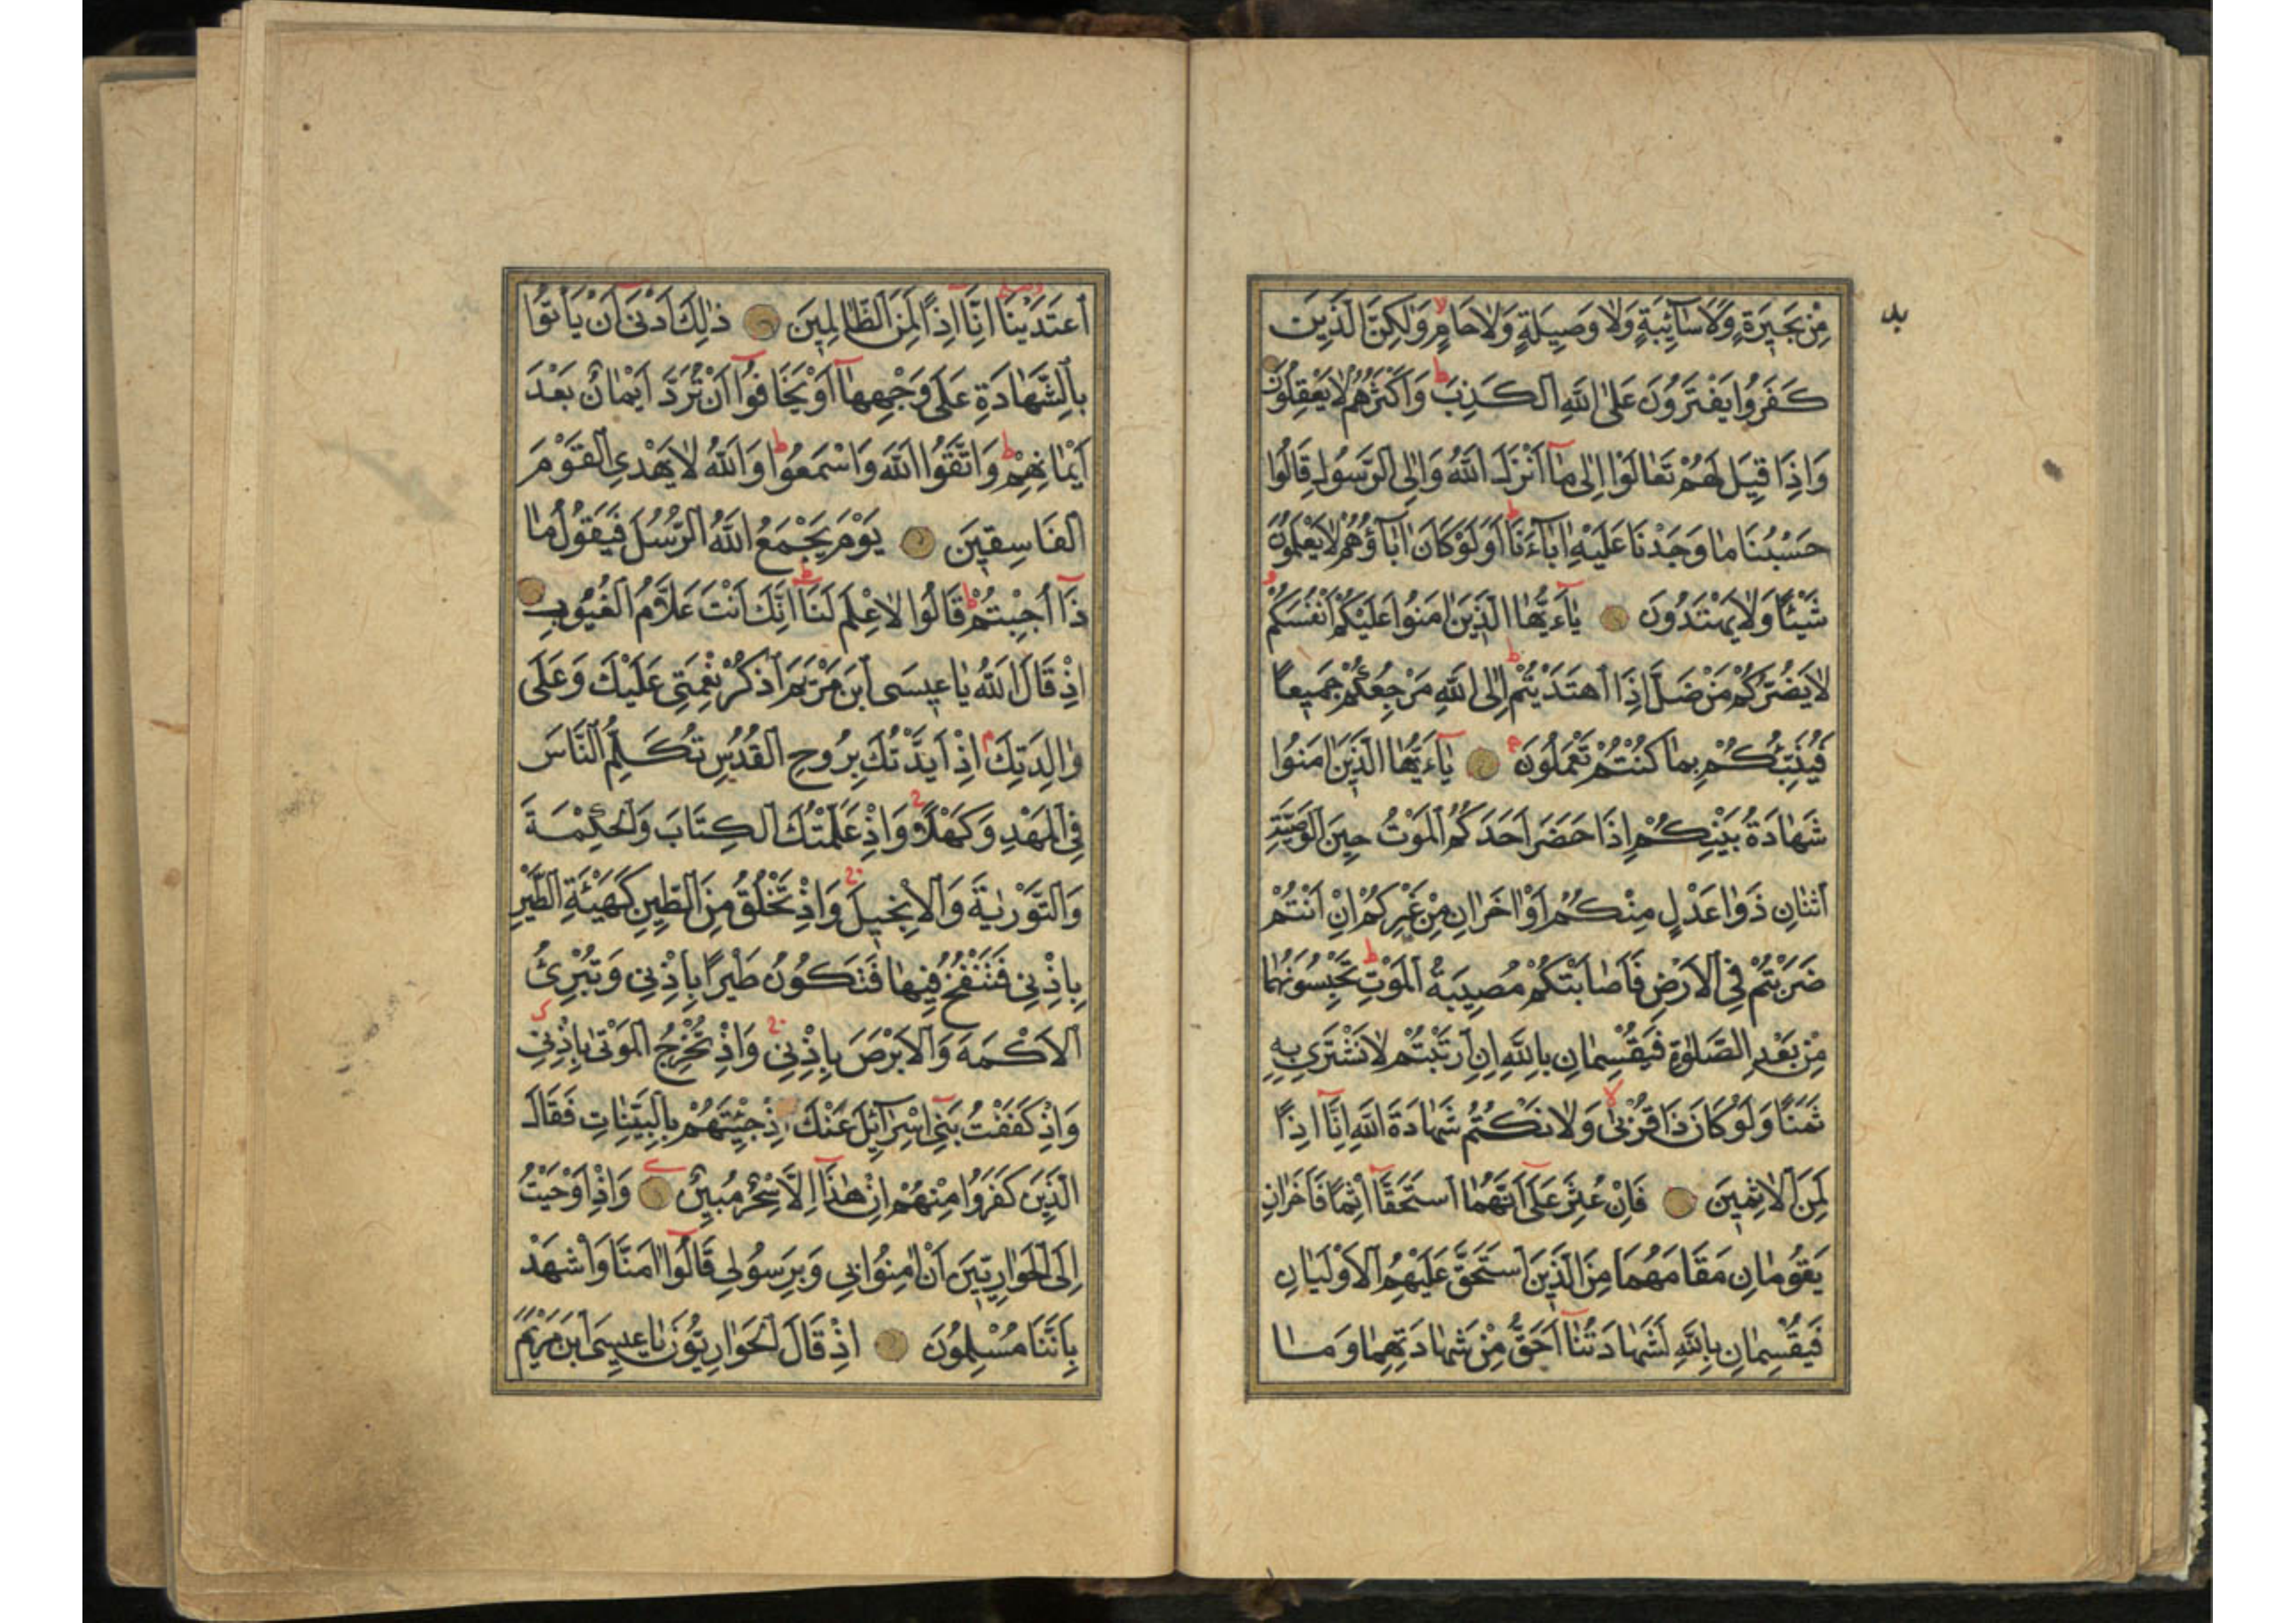 مِنْ بَحِيرَةٍ وَلَا سَآئِبَةٍ وَلَا وَصِيلَةٍ وَلَا حَامٍ وَلٰكِنَّ الَّذِينَ
كَفَرُوا يَفْتَرُونَ عَلَى اللّٰهِ الْكَذِبَ وَاَكْثَرُهُمْ لَا يَعْقِلُونَ
وَاِذَا قِيلَ لَهُمْ تَعَالَوْا اِلٰى مَآ اَنْزَلَ اللّٰهُ وَاِلَى الرَّسُولِ قَالُوا
حَسْبُنَا مَا وَجَدْنَا عَلَيْهِ اٰبَآءَنَا اَوَلَوْ كَانَ اٰبَآؤُهُمْ لَا يَعْلَمُونَ
شَيْئًا وَلَا يَهْتَدُونَ يَآءَيُّهَا الَّذِينَ اٰمَنُوا عَلَيْكُمْ اَنْفُسَكُمْ
لَا يَضُرُّكُمْ مَنْ ضَلَّ اِذَا اهْتَدَيْتُمْ اِلَى اللّٰهِ مَرْجِعُكُمْ جَمِيعًا
فَيُنَبِّئُكُمْ بِمَا كُنْتُمْ تَعْمَلُونَ يَآءَيُّهَا الَّذِينَ اٰمَنُوا
شَهَادَةُ بَيْنِكُمْ اِذَا حَضَرَ اَحَدَكُمُ الْمَوْتُ حِينَ الْوَصِيَّةِ
اثْنَانِ ذَوَا عَدْلٍ مِنْكُمْ اَوْ اٰخَرَانِ مِنْ غَيْرِكُمْ اِنْ اَنْتُمْ
ضَرَبْتُمْ فِي الْاَرْضِ فَاَصَابَتْكُمْ مُصِيبَةُ الْمَوْتِ تَحْبِسُونَهُمَا
مِنْ بَعْدِ الصَّلٰوةِ فَيُقْسِمَانِ بِاللّٰهِ اِنِ ارْتَبْتُمْ لَا نَشْتَرِي بِهِ
ثَمَنًا وَلَوْ كَانَ ذَا قُرْبٰى وَلَا نَكْتُمُ شَهَادَةَ اللّٰهِ اِنَّا اِذًا
لَمِنَ الْاٰثِمِينَ فَاِنْ عُثِرَ عَلٰٓى اَنَّهُمَا اسْتَحَقَّآ اِثْمًا فَاٰخَرَانِ
يَقُومَانِ مَقَامَهُمَا مِنَ الَّذِينَ اسْتَحَقَّ عَلَيْهِمُ الْاَوْلَيَانِ
فَيُقْسِمَانِ بِاللّٰهِ لَشَهَادَتُنَآ اَحَقُّ مِنْ شَهَادَتِهِمَا وَمَا
اعْتَدَيْنَآ اِنَّآ اِذًا لَمِنَ الظَّالِمِينَ ذٰلِكَ اَدْنٰٓى اَنْ يَأْتُوا
بِالشَّهَادَةِ عَلٰى وَجْهِهَآ اَوْ يَخَافُوٓا اَنْ تُرَدَّ اَيْمَانٌ بَعْدَ
اَيْمَانِهِمْ وَاتَّقُوا اللّٰهَ وَاسْمَعُوا وَاللّٰهُ لَا يَهْدِي الْقَوْمَ
الْفَاسِقِينَ يَوْمَ يَجْمَعُ اللّٰهُ الرُّسُلَ فَيَقُولُ مَا
ذَآ اُجِبْتُمْ قَالُوا لَا عِلْمَ لَنَا اِنَّكَ اَنْتَ عَلَّامُ الْغُيُوبِ
اِذْ قَالَ اللّٰهُ يَا عِيسَى ابْنَ مَرْيَمَ اذْكُرْ نِعْمَتِي عَلَيْكَ وَعَلٰى
وَالِدَتِكَ اِذْ اَيَّدْتُكَ بِرُوحِ الْقُدُسِ تُكَلِّمُ النَّاسَ
فِي الْمَهْدِ وَكَهْلًا وَاِذْ عَلَّمْتُكَ الْكِتَابَ وَالْحِكْمَةَ
وَالتَّوْرٰيةَ وَالْاِنْجِيلَ وَاِذْ تَخْلُقُ مِنَ الطِّينِ كَهَيْئَةِ الطَّيْرِ
بِاِذْنِي فَتَنْفُخُ فِيهَا فَتَكُونُ طَيْرًا بِاِذْنِي وَتُبْرِئُ
الْاَكْمَهَ وَالْاَبْرَصَ بِاِذْنِي وَاِذْ تُخْرِجُ الْمَوْتٰى بِاِذْنِي
وَاِذْ كَفَفْتُ بَنِيٓ اِسْرَآئِلَ عَنْكَ اِذْ جِئْتَهُمْ بِالْبَيِّنَاتِ فَقَالَ
الَّذِينَ كَفَرُوا مِنْهُمْ اِنْ هٰذَآ اِلَّا سِحْرٌ مُبِينٌ وَاِذْ اَوْحَيْتُ
اِلَى الْحَوَارِيِّينَ اَنْ اٰمِنُوا بِي وَبِرَسُولِي قَالُوٓا اٰمَنَّا وَاشْهَدْ
بِاَنَّنَا مُسْلِمُونَ اِذْ قَالَ الْحَوَارِيُّونَ يَا عِيسَى ابْنَ مَرْيَمَ